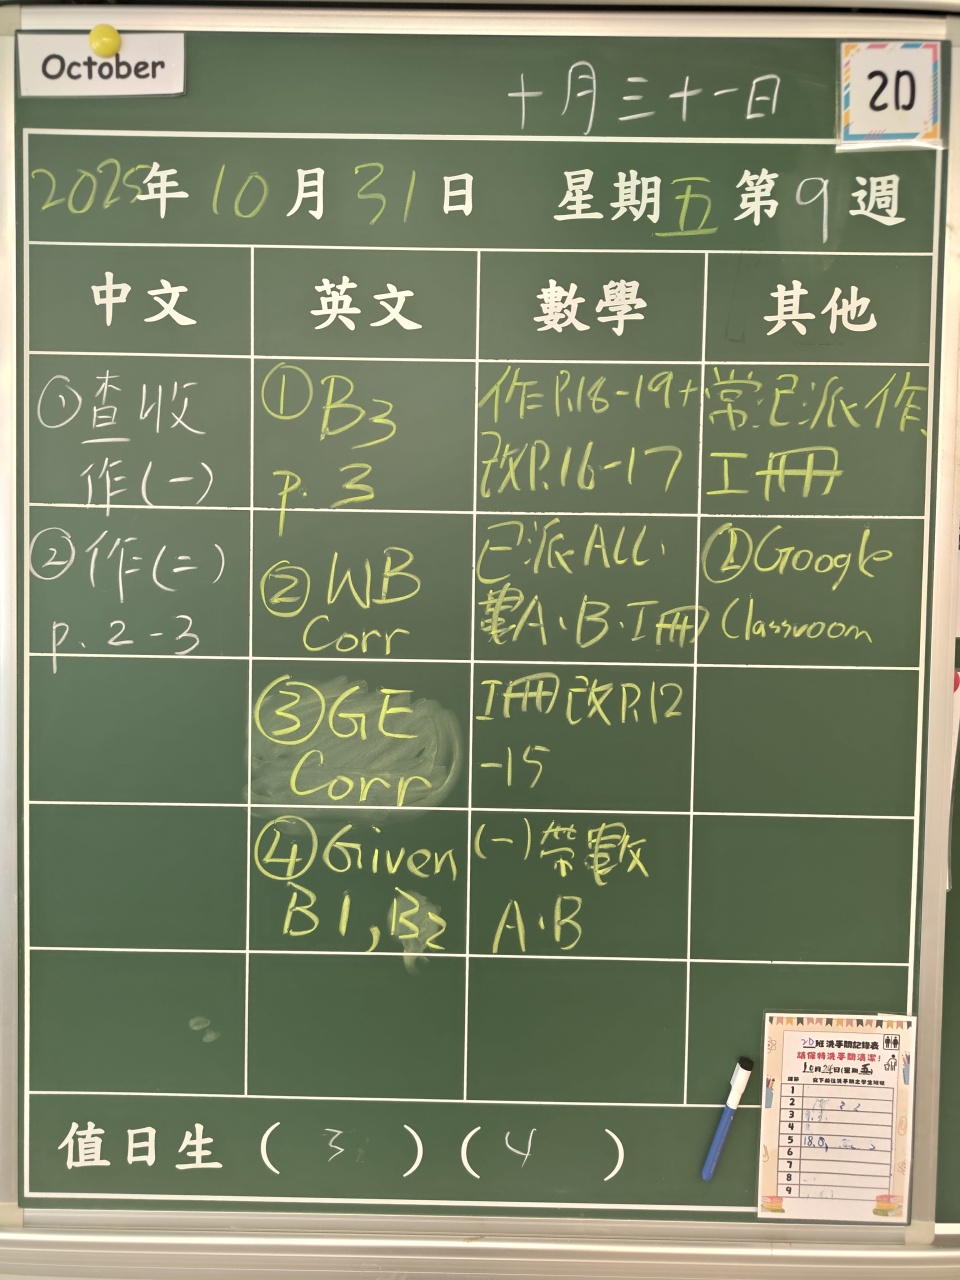 October
十月三十一日
2D
2025年10月31日 星期五 第9週
中文
英文
數學
其他
①查收
作(一)
②作(二)
p.2-3
①B3
p.3
②WB
Corr
③GE
Corr
④Given
B1,B2
作P.18-19+
改P.16-17
已派ALL.
A.B.工冊
工冊改P.12
-15
(一)帶電教
A.B
常:已派作
工冊
②Google
Classroom
值日生 (3) (4)
2D班洗手間記錄表
請保持洗手間清潔!
10月24日(星期五)
課節
1
2
3
4
5
6
7
8
9